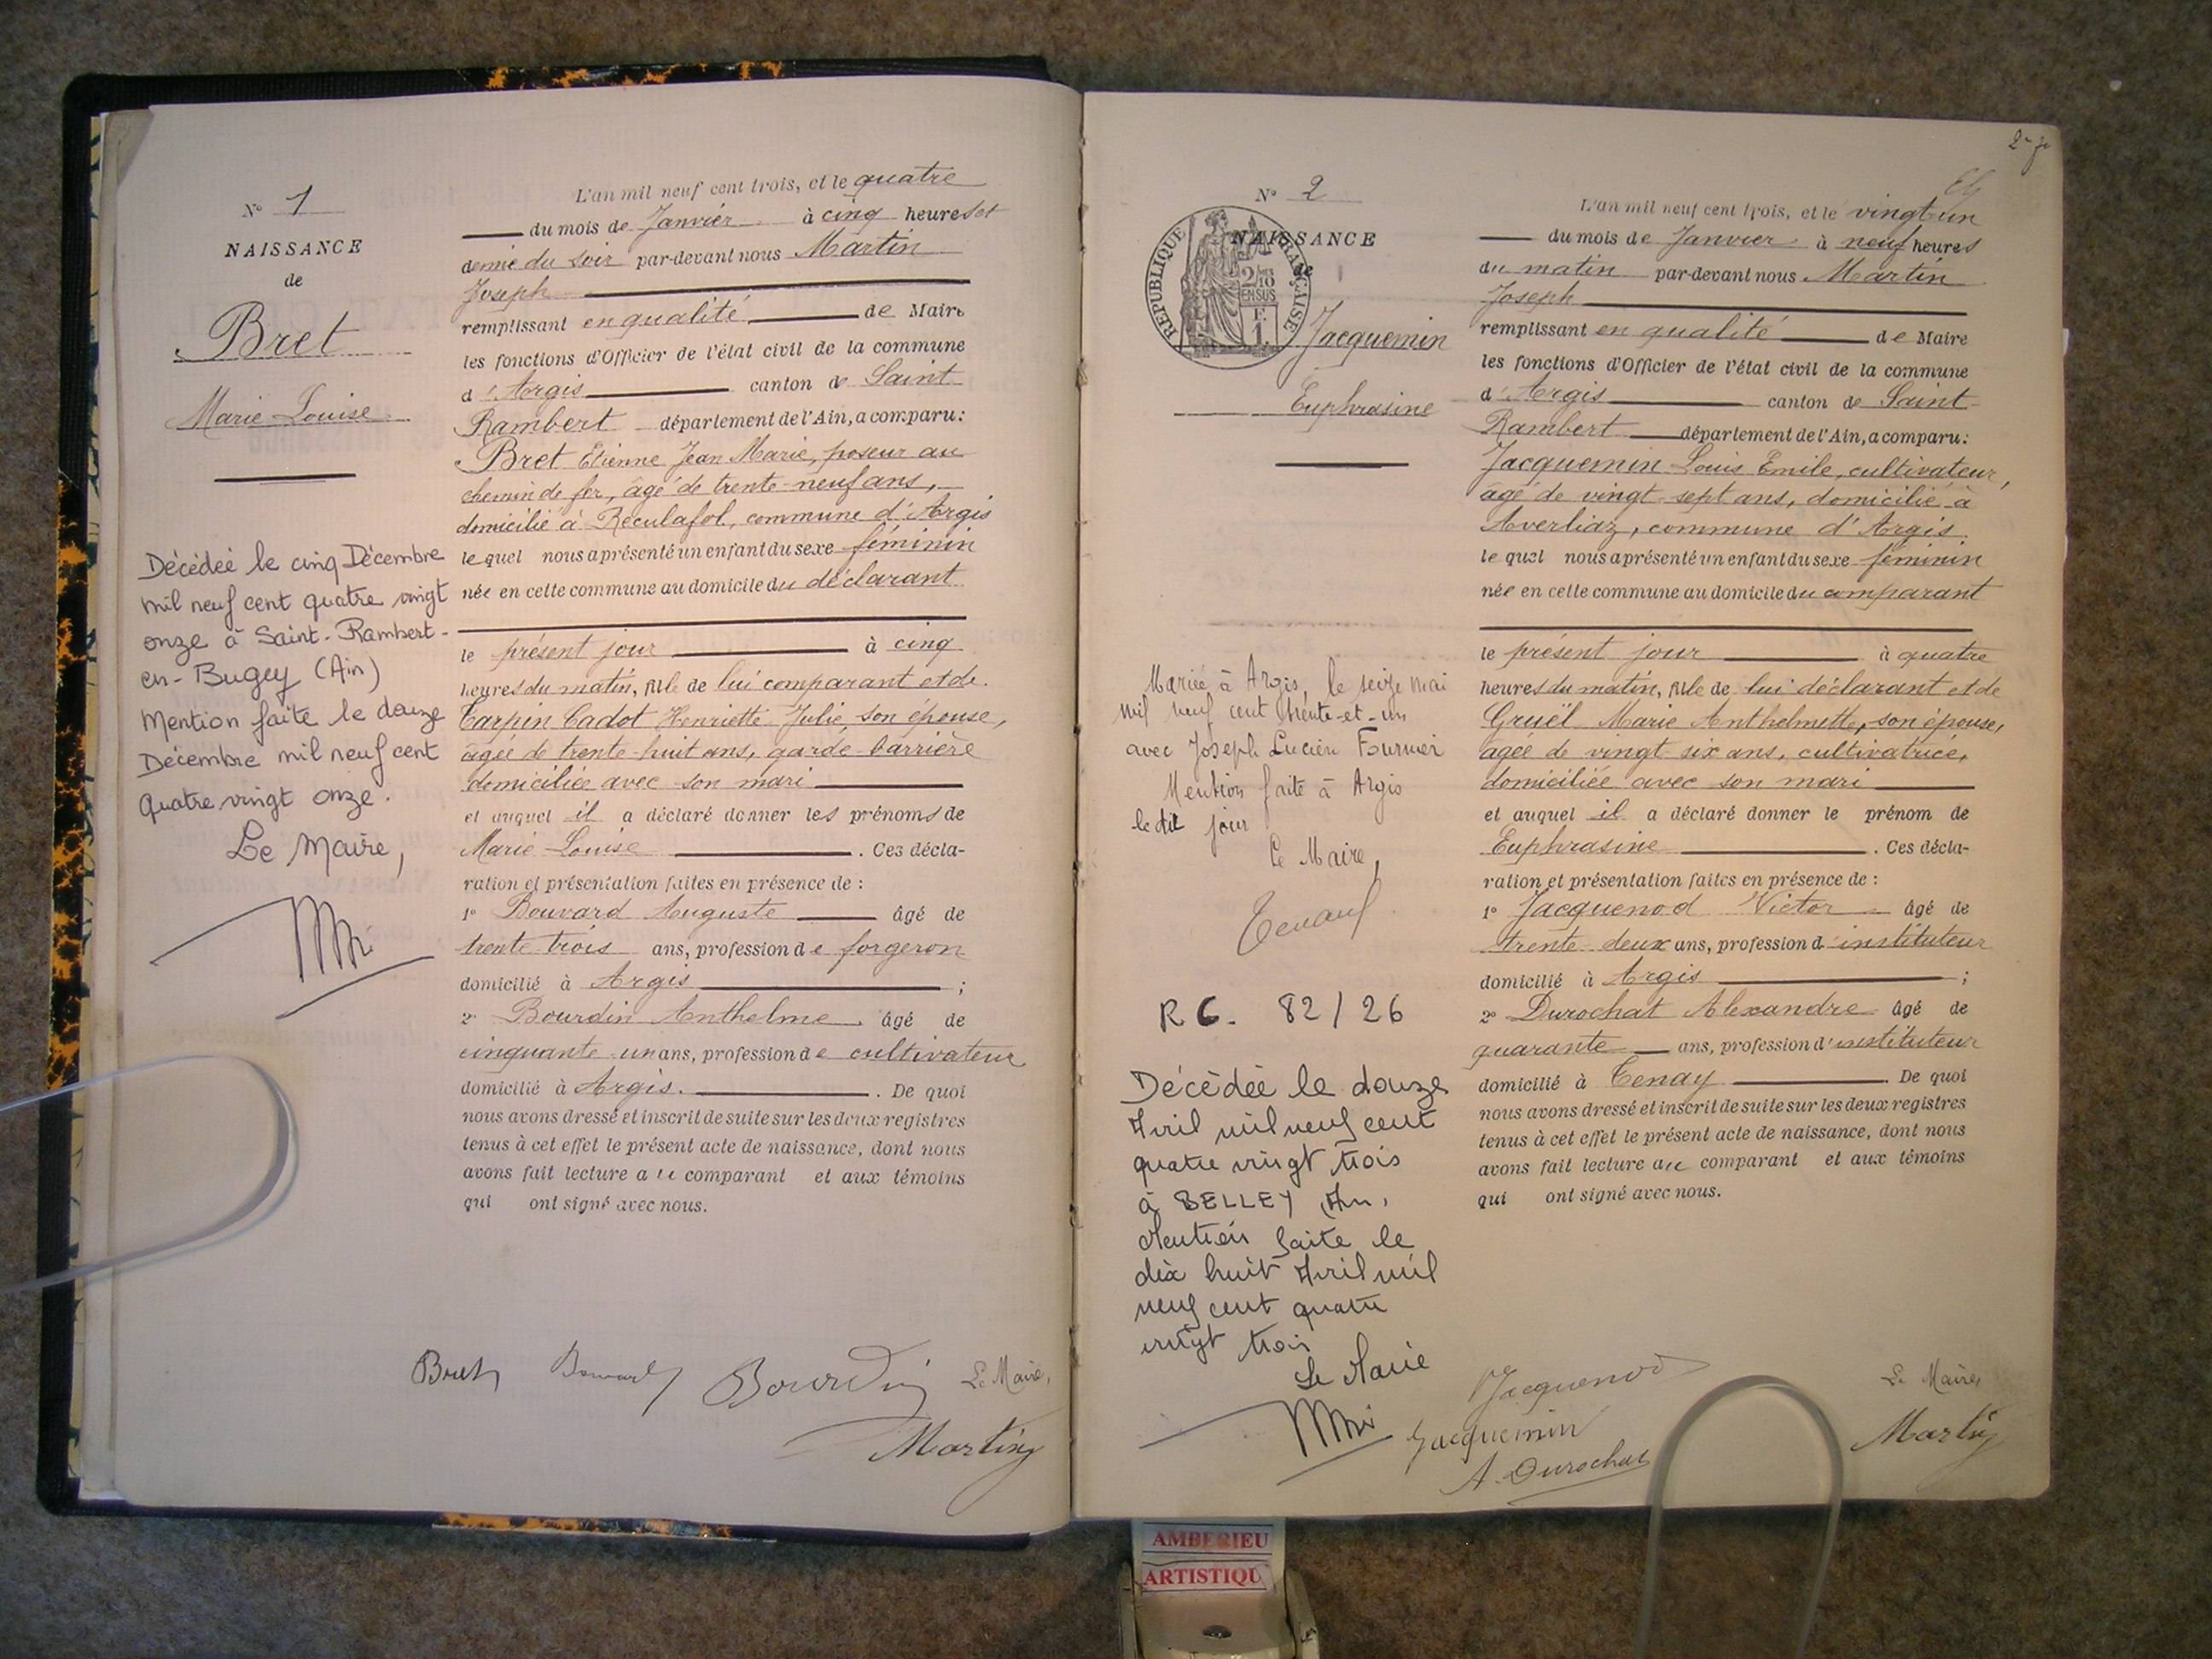 N° 1
NAISSANCE
de
Bret
Marie Louise
Décédée le cinq Décembre
mil neuf cent quatre vingt
onze à Saint-Rambert-
en-Bugey (Ain)
Mention faite le douze
Décembre mil neuf cent
quatre vingt onze.
Le Maire,
L'an mil neuf cent trois, et le quatre
du mois de Janvier à cinq heures et
demie du soir par-devant nous Martin
Joseph
remplissant en qualité de Maire
les fonctions d'Officier de l'état civil de la commune
d'Argis canton de Saint-
Rambert département de l'Ain, a comparu:
Bret Etienne Jean Marie, poseur au
chemin de fer, âgé de trente-neuf ans,
domicilié à Reculafol, commune d'Argis
le quel nous a présenté un enfant du sexe féminin
née en cette commune au domicile du déclarant
le présent jour à cinq
heures du matin, fille de lui comparant et de
Carpin Cadot Henriette Julie, son épouse,
âgée de trente-huit ans, garde-barrière
domiciliée avec son mari
et auquel il a déclaré donner les prénoms de
Marie Louise . Ces décla-
ration et présentation faites en présence de :
1° Bouvard Auguste âgé de
trente trois ans, profession de forgeron
domicilié à Argis ;
2° Bourdin Anthelme âgé de
cinquante-un ans, profession de cultivateur
domicilié à Argis. . De quoi
nous avons dressé et inscrit de suite sur les deux registres
tenus à cet effet le présent acte de naissance, dont nous
avons fait lecture au comparant et aux témoins
qui ont signé avec nous.
Bret Bouvard Bourdin Le Maire,
Martin
N° 2
NAISSANCE
de
REPUBLIQUE FRANÇAISE
2/10
EN SUS
F.
1.
Jacquemin
Euphrasine
Mariée à Argis, le seize mai
mil neuf cent trente-et-un
avec Joseph Lucien Fournier
Mention faite à Argis
le dit jour
Le Maire,
R C. 82/26
Décédée le douze
Avril mil neuf cent
quatre vingt trois
à BELLEY Ain,
Mention faite le
dix huit Avril mil
neuf cent quatre
vingt trois
Le Maire
L'an mil neuf cent trois, et le vingt-un
du mois de Janvier à neuf heures
du matin par-devant nous Martin
Joseph
remplissant en qualité de Maire
les fonctions d'Officier de l'état civil de la commune
d'Argis canton de Saint-
Rambert département de l'Ain, a comparu:
Jacquemin Louis Emile, cultivateur,
âgé de vingt-sept ans, domicilié à
Averliaz, commune d'Argis
le quel nous a présenté un enfant du sexe féminin
née en cette commune au domicile du comparant
le présent jour à quatre
heures du matin, fille de lui déclarant et de
Gruël Marie Anthelmette, son épouse,
âgée de vingt-six ans, cultivatrice,
domiciliée avec son mari
et auquel il a déclaré donner le prénom de
Euphrasine . Ces décla-
ration et présentation faites en présence de :
1° Jacquenod Victor âgé de
trente-deux ans, profession d'instituteur
domicilié à Argis ;
2° Durochat Alexandre âgé de
quarante ans, profession d'instituteur
domicilié à Tenay . De quoi
nous avons dressé et inscrit de suite sur les deux registres
tenus à cet effet le présent acte de naissance, dont nous
avons fait lecture au comparant et aux témoins
qui ont signé avec nous.
Jacquenod
Le Maire,
Jacquemin
Martin
A. Durochat
AMBERIEU
ARTISTIQU